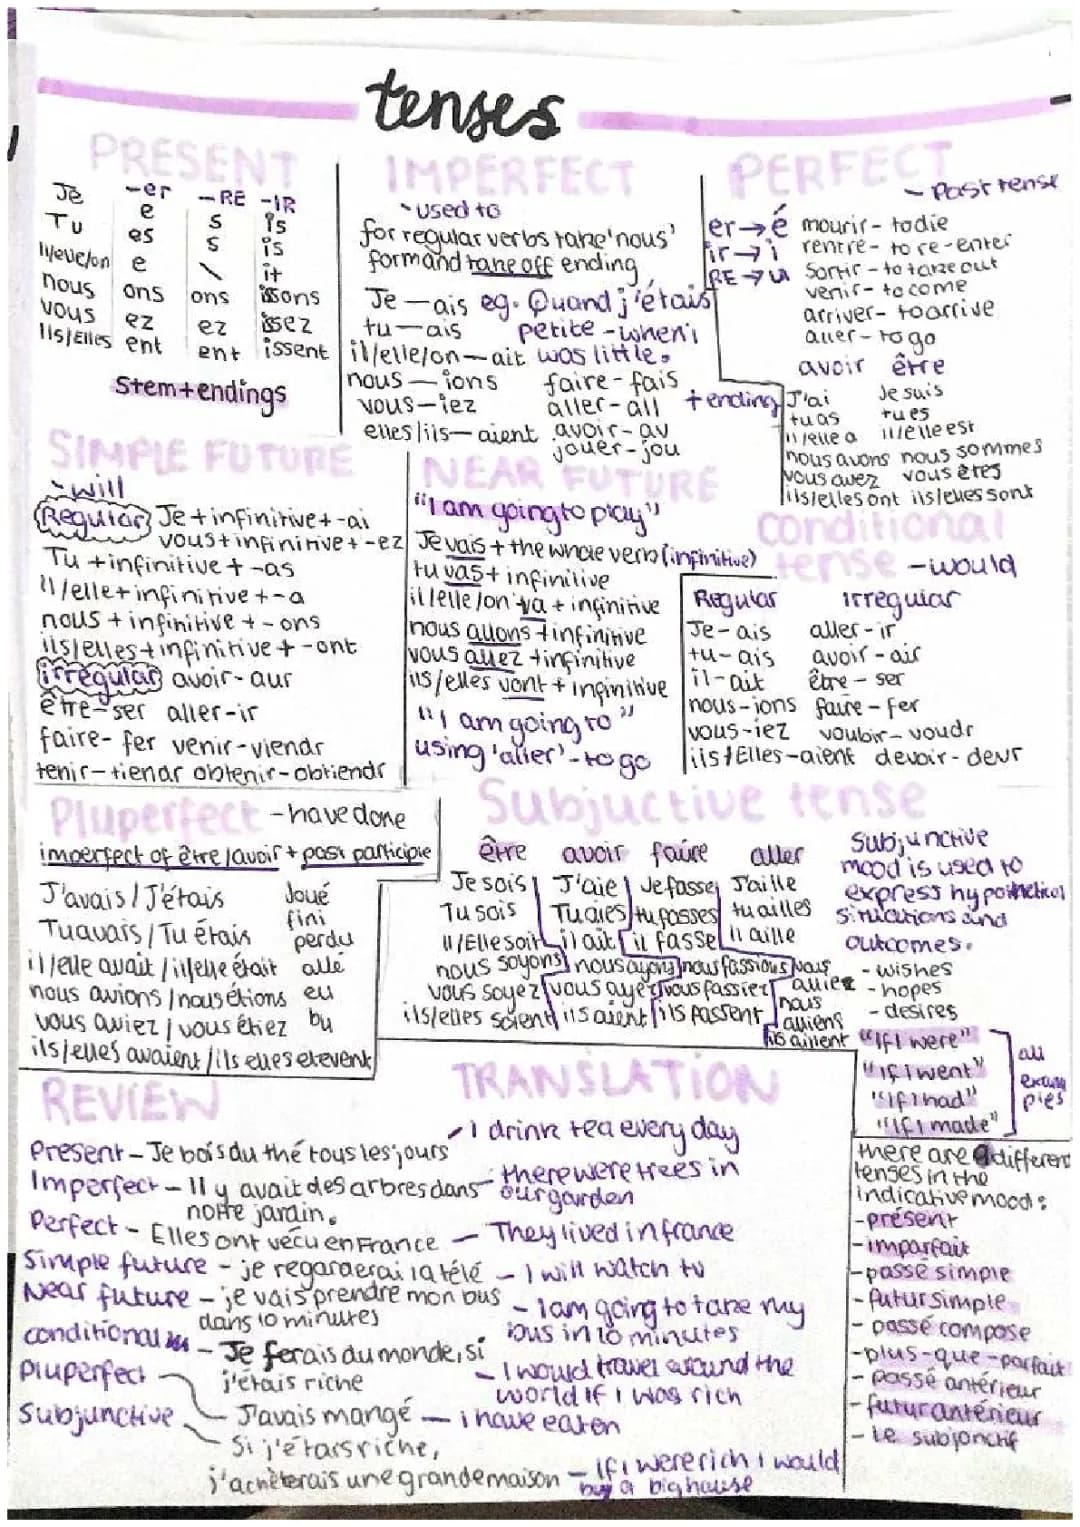 tenses
PRESENT
-er -RE -IR
Je e s is
Tu es s is
il/elle/on e \ it
nous ons ons issons
vous ez ez issez
ils/Elles ent ent issent
Stem+endings
IMPERFECT
- used to
for regular verbs take 'nous'
form and take off ending
Je — ais eg. Quand j'étais
tu — ais petite - when i
il/elle/on — ait was little.
nous — ions faire - fais
vous — iez aller - all
elles/ils — aient avoir - av
jouer - jou
+ ending
PERFECT
- Past tense
er → é mourir - to die
ir → i rentre - to re-enter
RE → u Sortir - to take out
venir - to come
arriver - to arrive
aller - to go
avoir être
J'ai Je suis
tu as tu es
il/elle a il/elle est
nous avons nous sommes
vous avez vous êtes
ils/elles ont ils/elles sont
SIMPLE FUTURE
- will
Regular Je + infinitive + -ai
vous + infinitive + -ez
Tu + infinitive + -as
Il/elle + infinitive + -a
nous + infinitive + - ons
ils/elles + infinitive + -ont
irregular avoir - aur
être - ser aller - ir
faire - fer venir - viendr
tenir - tiendr obtenir - obtiendr
NEAR FUTURE
"I am going to play"
Je vais + the whole verb (infinitive)
tu vas + infinitive
il/elle/on va + infinitive
nous allons + infinitive
vous allez + infinitive
ils/elles vont + infinitive
"I am going to"
using 'aller' - to go
conditional
tense - would
Regular irregular
Je - ais aller - ir
tu - ais avoir - air
il - ait être - ser
nous - ions faire - fer
vous - iez voubir - voudr
ils/Elles - aient devoir - devr
Pluperfect - have done
imperfect of être/avoir + past participle
J'avais / J'étais Joué
Tu avais / Tu étais fini
perdu
il/elle avait / il/elle était allé
nous avions / nous étions eu
vous aviez / vous étiez bu
ils/elles avaient / ils elles etevent
Subjuctive tense
être avoir faire aller
Je sois J'aie Je fasse J'aille
Tu sois Tu aies tu fasses tu ailles
Il/Elle soit il ait il fasse Il aille
nous soyons nous ayons nous fassions vous
vous soyez vous ayez vous fassiez alliez
nous
alliens
ils/elles soient ils aient ils fassent ils aillent
Subjunctive
mood is used to
express hypothetical
situations and
outcomes.
- wishes
- hopes
- desires
"If I were"
"If I went"
"If I had"
"If I made"
all
exam
ples
REVIEW TRANSLATION
Present - Je bois du thé tous les jours - I drink tea every day
Imperfect - Il y avait des arbres dans - there were trees in
notre jardin. our garden
Perfect - Elles ont vécu en France - They lived in france
Simple future - je regarderai la télé - I will watch tv
Near future - je vais prendre mon bus - I am going to take my
dans 10 minutes bus in 10 minutes
conditional - Je ferais du monde, si - I would travel around the
j'étais riche world if I was rich
Pluperfect
J'avais mangé - i have eaten
Subjunctive
Si j'étais riche,
j'achèterais une grande maison - If I were rich I would
buy a big house
there are 9 different
tenses in the
indicative mood:
- présent
- imparfait
- passé simple
- futur simple
- passé compose
- plus-que-parfait
- passé antérieur
- futur antérieur
- Le subjonctif